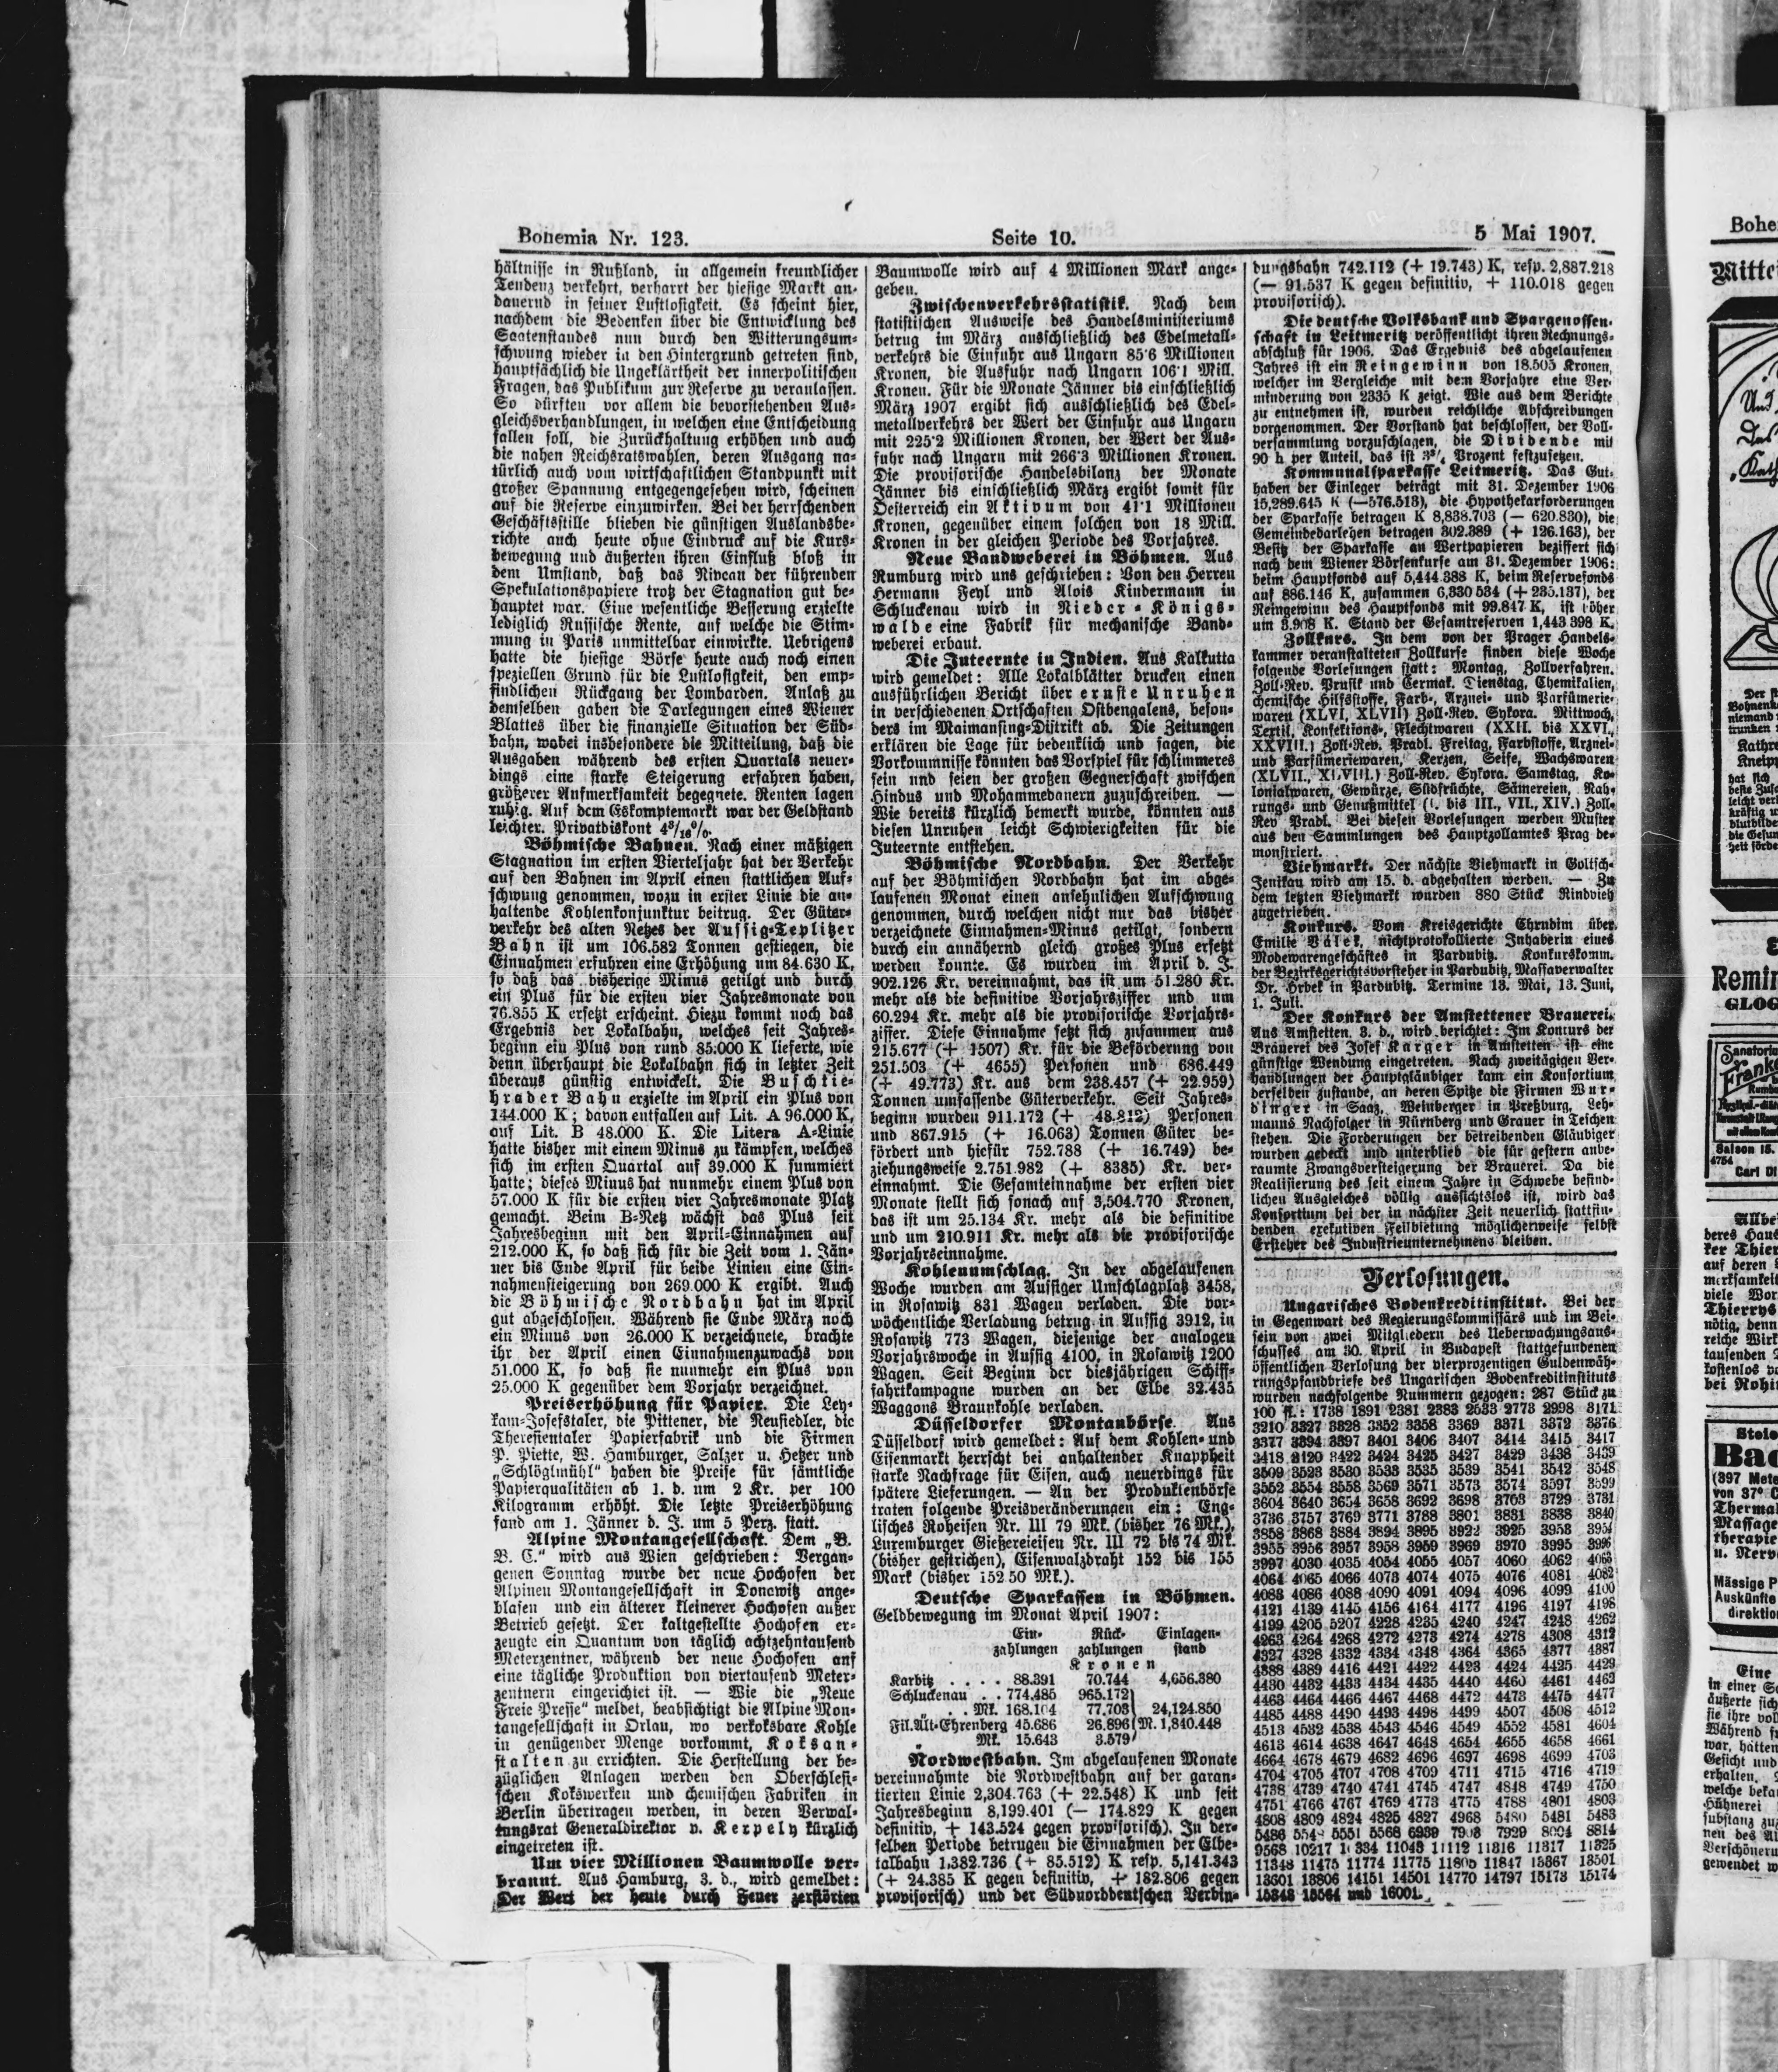 Bohemia Nr. 123.
Seite 10.
5 Mai 1907.
hältnisse in Rußland, in allgemein freundlicher
Tendenz verkehrt, verharrt der hiesige Markt an-
dauernd in seiner Lustlosigkeit. Es scheint hier,
nachdem die Bedenken über die Entwicklung des
Saatenstandes nun durch den Witterungsum-
schwung wieder in den Hintergrund getreten sind,
hauptsächlich die Ungeklärtheit der innerpolitischen
Fragen, das Publikum zur Reserve zu veranlassen.
So dürften vor allem die bevorstehenden Aus-
gleichsverhandlungen, in welchen eine Entscheidung
fallen soll, die Zurückhaltung erhöhen und auch
die nahen Reichsratswahlen, deren Ausgang na-
türlich auch vom wirtschaftlichen Standpunkt mit
großer Spannung entgegengesehen wird, scheinen
auf die Reserve einzuwirken. Bei der herrschenden
Geschäftsstille blieben die günstigen Auslandsbe-
richte auch heute ohne Eindruck auf die Kurs-
bewegung und äußerten ihren Einfluß bloß in
dem Umstand, daß das Niveau der führenden
Spekulationspapiere trotz der Stagnation gut be-
hauptet war. Eine wesentliche Besserung erzielte
lediglich Russische Rente, auf welche die Stim-
mung in Paris unmittelbar einwirkte. Uebrigens
hatte die hiesige Börse heute auch noch einen
speziellen Grund für die Lustlosigkeit, den emp-
findlichen Rückgang der Lombarden. Anlaß zu
demselben gaben die Darlegungen eines Wiener
Blattes über die finanzielle Situation der Süd-
bahn, wobei insbesondere die Mitteilung, daß die
Ausgaben während des ersten Quartals neuer-
dings eine starke Steigerung erfahren haben,
größerer Aufmerksamkeit begegnete. Renten lagen
ruhig. Auf dem Eskomptemarkt war der Geldstand
leichter. Privatdiskont 4⁹/₁₆%.
Böhmische Bahnen. Nach einer mäßigen
Stagnation im ersten Vierteljahr hat der Verkehr
auf den Bahnen im April einen stattlichen Auf-
schwung genommen, wozu in erster Linie die an-
haltende Kohlenkonjunktur beitrug. Der Güter-
verkehr des alten Netzes der Aussig-Teplitzer
Bahn ist um 106.582 Tonnen gestiegen, die
Einnahmen erfuhren eine Erhöhung um 84.630 K,
so daß das bisherige Minus getilgt und durch
ein Plus für die ersten vier Jahresmonate von
76.855 K ersetzt erscheint. Hiezu kommt noch das
Ergebnis der Lokalbahn, welches seit Jahres-
beginn ein Plus von rund 85.000 K lieferte, wie
denn überhaupt die Lokalbahn sich in letzter Zeit
überaus günstig entwickelt. Die Buschtie-
hrader Bahn erzielte im April ein Plus von
144.000 K; davon entfallen auf Lit. A 96.000 K,
auf Lit. B 48.000 K. Die Litera A-Linie
hatte bisher mit einem Minus zu kämpfen, welches
sich im ersten Quartal auf 39.000 K summiert
hatte; dieses Minus hat nunmehr einem Plus von
57.000 K für die ersten vier Jahresmonate Platz
gemacht. Beim B-Netz wächst das Plus seit
Jahresbeginn mit den April-Einnahmen auf
212.000 K, so daß sich für die Zeit vom 1. Jän-
ner bis Ende April für beide Linien eine Ein-
nahmensteigerung von 269.000 K ergibt. Auch
die Böhmische Nordbahn hat im April
gut abgeschlossen. Während sie Ende März noch
ein Minus von 26.000 K verzeichnete, brachte
ihr der April einen Einnahmenzuwachs von
51.000 K, so daß sie nunmehr ein Plus von
25.000 K gegenüber dem Vorjahr verzeichnet.
Preiserhöhung für Papier. Die Ley-
kam-Josefstaler, die Pittener, die Neusiedler, die
Theresientaler Papierfabrik und die Firmen
P. Piette, W. Hamburger, Salzer u. Hetzer und
„Schlöglmühl“ haben die Preise für sämtliche
Papierqualitäten ab 1. d. um 2 Kr. per 100
Kilogramm erhöht. Die letzte Preiserhöhung
fand am 1. Jänner d. J. um 5 Perz. statt.
Alpine Montangesellschaft. Dem „B.
B. C.“ wird aus Wien geschrieben: Vergan-
genen Sonntag wurde der neue Hochofen der
Alpinen Montangesellschaft in Donawitz ange-
blasen und ein älterer kleinerer Hochofen außer
Betrieb gesetzt. Der kaltgestellte Hochofen er-
zeugte ein Quantum von täglich achtzehntausend
Meterzentner, während der neue Hochofen auf
eine tägliche Produktion von viertausend Meter-
zentnern eingerichtet ist. — Wie die „Neue
Freie Presse“ meldet, beabsichtigt die Alpine Mon-
tangesellschaft in Orlau, wo verkoksbare Kohle
in genügender Menge vorkommt, Koksan-
stalten zu errichten. Die Herstellung der be-
züglichen Anlagen werden den Oberschlesi-
schen Kokswerken und chemischen Fabriken in
Berlin übertragen werden, in deren Verwal-
tungsrat Generaldirektor v. Kerpely kürzlich
eingetreten ist.
Um vier Millionen Baumwolle ver-
brannt. Aus Hamburg, 3. d., wird gemeldet:
Der Wert der heute durch Feuer zerstörten
Baumwolle wird auf 4 Millionen Mark ange-
geben.
Zwischenverkehrsstatistik. Nach dem
statistischen Ausweise des Handelsministeriums
betrug im März ausschließlich des Edelmetall-
verkehrs die Einfuhr aus Ungarn 85·6 Millionen
Kronen, die Ausfuhr nach Ungarn 106·1 Mill.
Kronen. Für die Monate Jänner bis einschließlich
März 1907 ergibt sich ausschließlich des Edel-
metallverkehrs der Wert der Einfuhr aus Ungarn
mit 225·2 Millionen Kronen, der Wert der Aus-
fuhr nach Ungarn mit 266·3 Millionen Kronen.
Die provisorische Handelsbilanz der Monate
Jänner bis einschließlich März ergibt somit für
Oesterreich ein Aktivum von 41·1 Millionen
Kronen, gegenüber einem solchen von 18 Mill.
Kronen in der gleichen Periode des Vorjahres.
Neue Bandweberei in Böhmen. Aus
Rumburg wird uns geschrieben: Von den Herren
Hermann Feyl und Alois Kindermann in
Schluckenau wird in Nieder-Königs-
walde eine Fabrik für mechanische Band-
weberei erbaut.
Die Juteernte in Indien. Aus Kalkutta
wird gemeldet: Alle Lokalblätter drucken einen
ausführlichen Bericht über ernste Unruhen
in verschiedenen Ortschaften Ostbengalens, beson-
ders im Maimansing-Distrikt ab. Die Zeitungen
erklären die Lage für bedenklich und sagen, die
Vorkommnisse könnten das Vorspiel für schlimmeres
sein und seien der großen Gegnerschaft zwischen
Hindus und Mohammedanern zuzuschreiben. —
Wie bereits kürzlich bemerkt wurde, könnten aus
diesen Unruhen leicht Schwierigkeiten für die
Juteernte entstehen.
Böhmische Nordbahn. Der Verkehr
auf der Böhmischen Nordbahn hat im abge-
laufenen Monat einen ansehnlichen Aufschwung
genommen, durch welchen nicht nur das bisher
verzeichnete Einnahmen-Minus getilgt, sondern
durch ein annähernd gleich großes Plus ersetzt
werden konnte. Es wurden im April d. J.
902.126 Kr. vereinnahmt, das ist um 51.280 Kr.
mehr als die definitive Vorjahrsziffer und um
60.294 Kr. mehr als die provisorische Vorjahrs-
ziffer. Diese Einnahme setzt sich zusammen aus
215.677 (+ 1507) Kr. für die Beförderung von
251.503 (+ 4655) Personen und 686.449
(+ 49.773) Kr. aus dem 238.457 (+ 22.959)
Tonnen umfassende Güterverkehr. Seit Jahres-
beginn wurden 911.172 (+ 48.812) Personen
und 867.915 (+ 16.063) Tonnen Güter be-
fördert und hiefür 752.788 (+ 16.749) be-
ziehungsweise 2.751.982 (+ 8385) Kr. ver-
einnahmt. Die Gesamteinnahme der ersten vier
Monate stellt sich sonach auf 3,504.770 Kronen,
das ist um 25.134 Kr. mehr als die definitive
und um 210.911 Kr. mehr als die provisorische
Vorjahrseinnahme.
Kohlenumschlag. In der abgelaufenen
Woche wurden am Aussiger Umschlagplatz 3458,
in Rosawitz 831 Wagen verladen. Die vor-
wöchentliche Verladung betrug in Aussig 3912, in
Rosawitz 773 Wagen, diejenige der analogen
Vorjahrswoche in Aussig 4100, in Rosawitz 1200
Wagen. Seit Beginn der diesjährigen Schiff-
fahrtkampagne wurden an der Elbe 32.435
Waggons Braunkohle verladen.
Düsseldorfer Montanbörse. Aus
Düsseldorf wird gemeldet: Auf dem Kohlen- und
Eisenmarkt herrscht bei anhaltender Knappheit
starke Nachfrage für Eisen, auch neuerdings für
spätere Lieferungen. — An der Produktenbörse
traten folgende Preisveränderungen ein: Eng-
lisches Roheisen Nr. III 79 Mk. (bisher 76 Mk.),
Luxemburger Gießereieisen Nr. III 72 bis 74 Mk.
(bisher gestrichen), Eisenwalzdraht 152 bis 155
Mark (bisher 152 50 Mk.).
Deutsche Sparkassen in Böhmen.
Geldbewegung im Monat April 1907:
Ein- Rück- Einlagen-
zahlungen zahlungen stand
Kronen
Karbitz . . . . 88.391 70.744 4,656.380
Schluckenau . . 774.485 965.172
„ . . Mk. 168.104 77.703 24,124.850
Fil. Alt-Ehrenberg 45.686 26.896 M. 1,840.448
„ Mk. 15.643 3.579
Nordwestbahn. Im abgelaufenen Monate
vereinnahmte die Nordwestbahn auf der garan-
tierten Linie 2,304.763 (+ 22.548) K und seit
Jahresbeginn 8,199.401 (— 174.829 K gegen
definitiv, + 143.524 gegen provisorisch). In der-
selben Periode betrugen die Einnahmen der Elbe-
talbahn 1,382.736 (+ 85.512) K resp. 5,141.343
(+ 24.385 K gegen definitiv, + 182.806 gegen
provisorisch) und der Südnorddeutschen Verbin-
dungsbahn 742.112 (+ 19.743) K, resp. 2,887.218
(— 91.537 K gegen definitiv, + 110.018 gegen
provisorisch).
Die deutsche Volksbank und Spargenossen-
schaft in Leitmeritz veröffentlicht ihren Rechnungs-
abschluß für 1906. Das Ergebnis des abgelaufenen
Jahres ist ein Reingewinn von 18.505 Kronen,
welcher im Vergleiche mit dem Vorjahre eine Ver-
minderung von 2335 K zeigt. Wie aus dem Berichte
zu entnehmen ist, wurden reichliche Abschreibungen
vorgenommen. Der Vorstand hat beschlossen, der Voll-
versammlung vorzuschlagen, die Dividende mit
90 h per Anteil, das ist Prozent festzusetzen.
Kommunalsparkasse Leitmeritz. Das Gut-
haben der Einleger beträgt mit 31. Dezember 1906
15,289.645 K (—576.513), die Hypothekarforderungen
der Sparkasse betragen K 8,838.703 (— 620.830), die
Gemeindedarlehen betragen 302.389 (+ 126.163), der
Besitz der Sparkasse an Wertpapieren beziffert sich
nach dem Wiener Börsenkurse am 31. Dezember 1906:
beim Hauptfonds auf 5,444.388 K, beim Reservefonds
auf 886.146 K, zusammen 6,330 534 (+ 235.137), der
Reingewinn des Hauptfonds mit 99.847 K, ist höher
um 3.908 K. Stand der Gesamtreserven 1,443 398 K.
Zollkurs. In dem von der Prager Handels-
kammer veranstalteten Zollkurse finden diese Woche
folgende Vorlesungen statt: Montag, Zollverfahren.
Zoll-Rev. Prusik und Cermak. Dienstag, Chemikalien,
chemische Hilfsstoffe, Farb-, Arznei- und Parfümerie-
waren (XLVI, XLVII) Zoll-Rev. Sykora. Mittwoch,
Textil, Konfektions-, Flechtwaren (XXII. bis XXVI.,
XXVIII.) Zoll-Rev. Pradl. Freitag, Farbstoffe, Arznei-
und Parfümeriewaren, Kerzen, Seife, Wachswaren
(XLVII., XLVIII.) Zoll-Rev. Sykora. Samstag, Ko-
lonialwaren, Gewürze, Südfrüchte, Sämereien, Nah-
rungs- und Genußmittel (I. bis III., VII., XIV.) Zoll-
Rev Pradl. Bei diesen Vorlesungen werden Muster
aus den Sammlungen des Hauptzollamtes Prag de-
monstriert.
Viehmarkt. Der nächste Viehmarkt in Goltsch-
Jenikau wird am 15. d. abgehalten werden. — Zu
dem letzten Viehmarkt wurden 880 Stück Rindvieh
zugetrieben.
Konkurs. Vom Kreisgerichte Chrudim über
Emilie Válek, nichtprotokollierte Inhaberin eines
Modewarengeschäftes in Pardubitz. Konkurskomm.
der Bezirksgerichtsvorsteher in Pardubitz, Massaverwalter
Dr. Hrbek in Pardubitz. Termine 13. Mai, 13. Juni,
1. Juli.
Der Konkurs der Amstettener Brauerei.
Aus Amstetten, 3. d., wird berichtet: Im Konkurs der
Brauerei des Josef Karger in Amstetten ist eine
günstige Wendung eingetreten. Nach zweitägigen Ver-
handlungen der Hauptgläubiger kam ein Konsortium
derselben zustande, an deren Spitze die Firmen Wur-
dinger in Saaz, Weinberger in Preßburg, Leh-
manns Nachfolger in Nürnberg und Grauer in Teschen
stehen. Die Forderungen der betreibenden Gläubiger
wurden gedeckt und unterblieb die für gestern anbe-
raumte Zwangsversteigerung der Brauerei. Da die
Realisierung des seit einem Jahre in Schwebe befind-
lichen Ausgleiches völlig aussichtslos ist, wird das
Konsortium bei der in nächster Zeit neuerlich stattfin-
denden exekutiven Feilbietung möglicherweise selbst
Ersteher des Industrieunternehmens bleiben.
Verlosungen.
Ungarisches Bodenkreditinstitut. Bei der
in Gegenwart des Regierungskommissärs und im Bei-
sein von zwei Mitgliedern des Ueberwachungsaus-
schusses am 30. April in Budapest stattgefundenen
öffentlichen Verlosung der vierprozentigen Guldenwäh-
rungspfandbriefe des Ungarischen Bodenkreditinstituts
wurden nachfolgende Nummern gezogen: 287 Stück zu
100 fl.: 1738 1891 2381 2383 2533 2773 2998 3171
3210 3327 3328 3352 3358 3369 3371 3372 3376
3377 3394 3397 3401 3406 3407 3414 3415 3417
3418 3120 3422 3424 3425 3427 3429 3438 3439
3509 3523 3530 3533 3535 3539 3541 3542 3548
3552 3554 3558 3569 3571 3573 3574 3597 3599
3604 3640 3654 3658 3692 3698 3703 3729 3731
3736 3757 3769 3771 3788 3801 3831 3838 3840
3858 3868 3884 3894 3895 3922 3925 3953 3954
3955 3956 3957 3958 3959 3969 3970 3995 3996
3997 4030 4035 4054 4055 4057 4060 4062 4063
4064 4065 4066 4073 4074 4075 4076 4081 4082
4083 4086 4088 4090 4091 4094 4096 4099 4100
4121 4139 4145 4156 4164 4177 4196 4197 4198
4199 4205 5207 4228 4235 4240 4247 4248 4262
4263 4264 4268 4272 4273 4274 4278 4308 4312
4327 4328 4332 4334 4348 4364 4365 4377 4387
4388 4389 4416 4421 4422 4423 4424 4425 4429
4430 4432 4433 4434 4435 4440 4460 4461 4462
4463 4464 4466 4467 4468 4472 4473 4475 4477
4485 4488 4490 4493 4498 4499 4507 4508 4512
4513 4532 4538 4543 4546 4549 4552 4581 4604
4613 4614 4638 4647 4648 4654 4655 4658 4661
4664 4678 4679 4682 4696 4697 4698 4699 4703
4704 4705 4707 4708 4709 4711 4715 4716 4719
4738 4739 4740 4741 4745 4747 4848 4749 4750
4751 4766 4767 4769 4773 4775 4788 4801 4803
4808 4809 4824 4825 4827 4968 5480 5481 5483
5486 5551 5568 6939 7903 7929 8004 8814
9568 10217 11043 11112 11316 11317 11325
11348 11475 11774 11775 11805 11847 13367 13501
13601 13806 14151 14501 14770 14797 15173 15174
15348 15564 und 16001.
Bohe
Mitte
Remin
GLOG
Sanatoriu
Franke
Saison 15.
4754
Carl Di
Bac
(397 Mete
von 37° C
Thermal
Massage
therapie
u. Nerv
Mässige P
Auskünfte
direktion